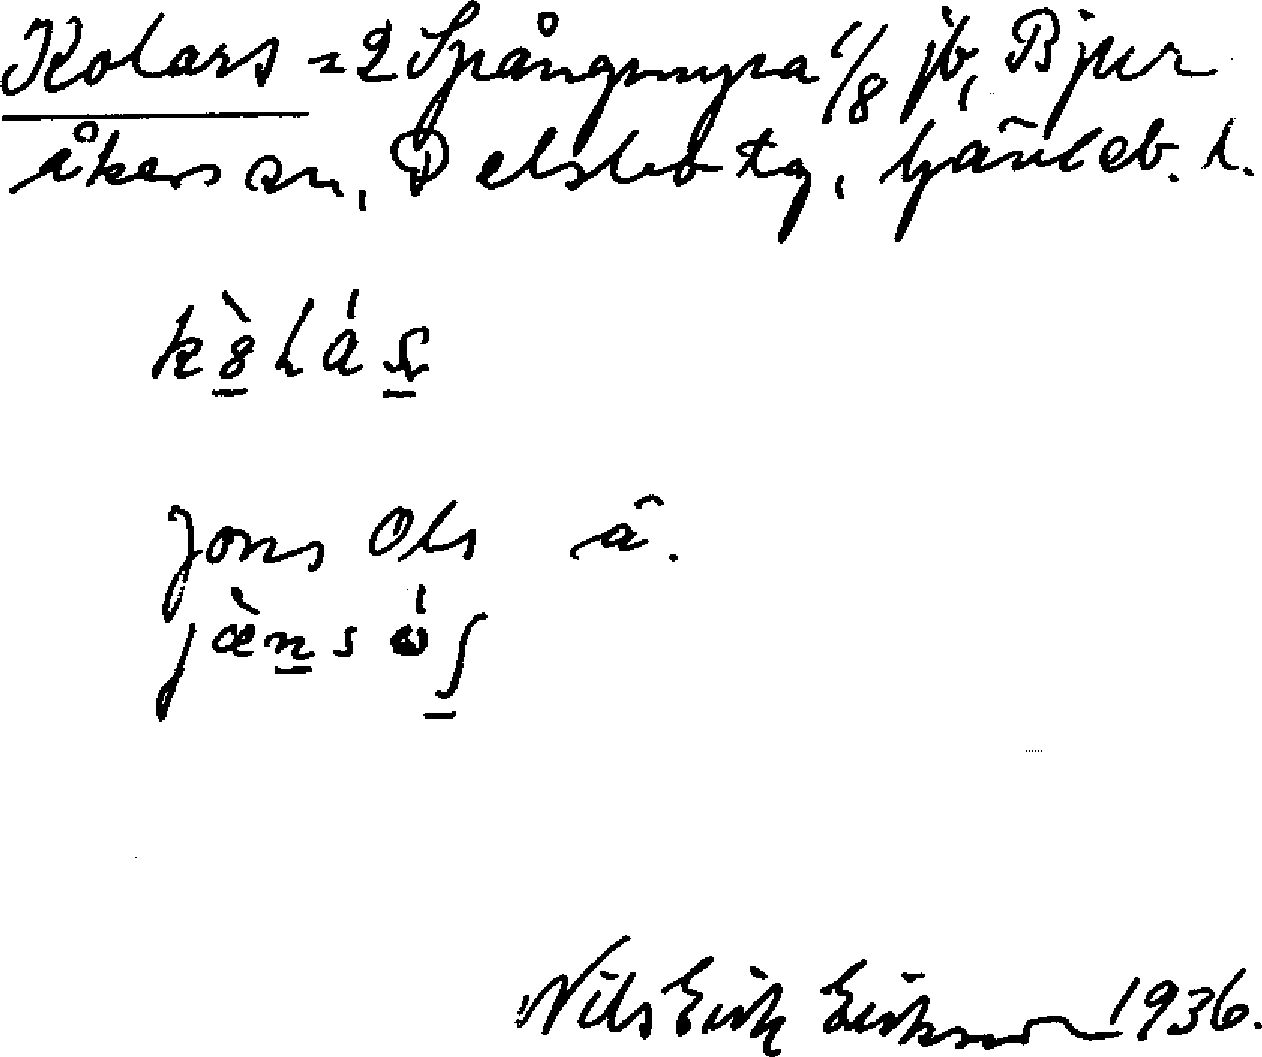 Kolars = 2 Spångmyra 1/8 jb, Bjur
åkers sn, Delsbo tg, Gävleb. l.
Jons Ols ä.
Nils Erik Eriksson 1936.